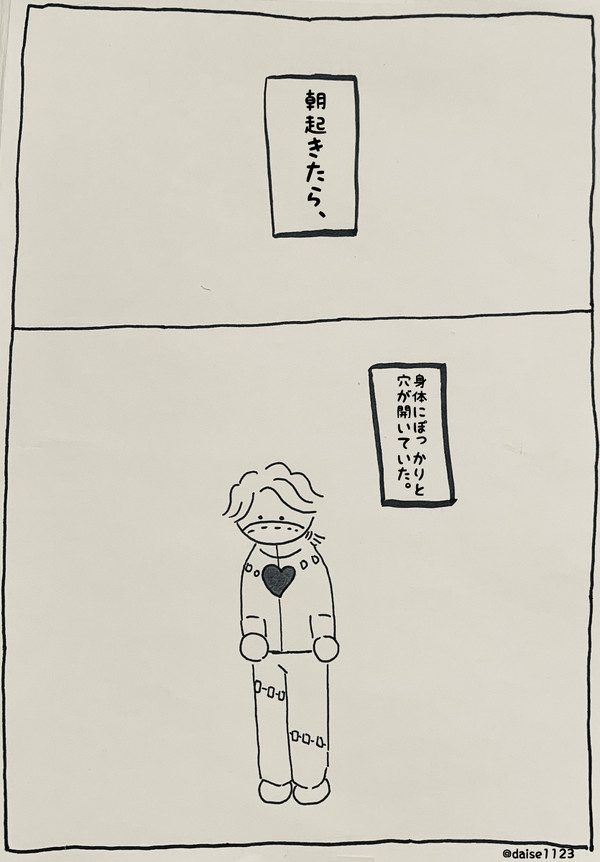 朝起きたら、
身体にぽっかりと
穴が開いていた。
@daise1123